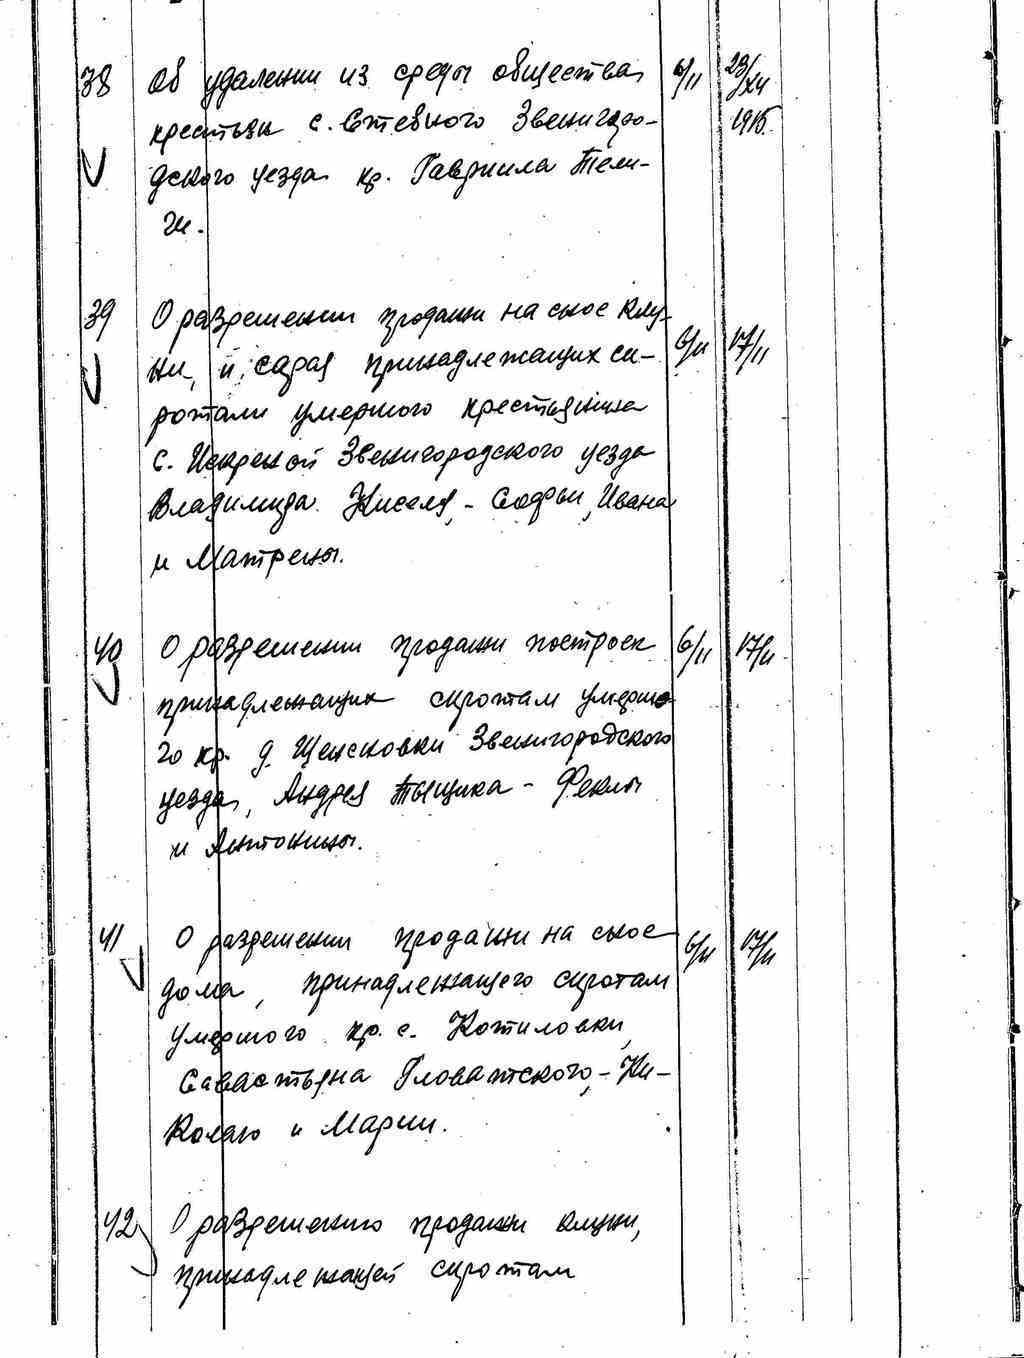 38 Об удалении из среды общества 6/II 23/XII
крестьян с. Стебного Звенигоро- 1915
дского уезда кр. Гавриила Тели-
ги.
39 О разрешении продажи на снос клу-
ни, и сарая принадлежащих си- 6/II 17/II
ротам умершого крестьянина
с. Искреной Звенигородского уезда
Владимира Киселя, - Софьи, Ивана
и Матрены.
40 О разрешении продажи построек 6/II 17/II
принадлежащих сиротам умершо-
го кр. д. Звенигородского
уезда, Андрея Тыщика - Феклы
и Антонины.
41 О разрешении продажи на снос 6/II 17/II
дома, принадлежащего сиротам
умершого кр. с. Котиловки,
Савастьяна Гловатского, - Ни-
колаю и Марии.
42 О разрешению продажи клуни,
принадлежащей сиротам